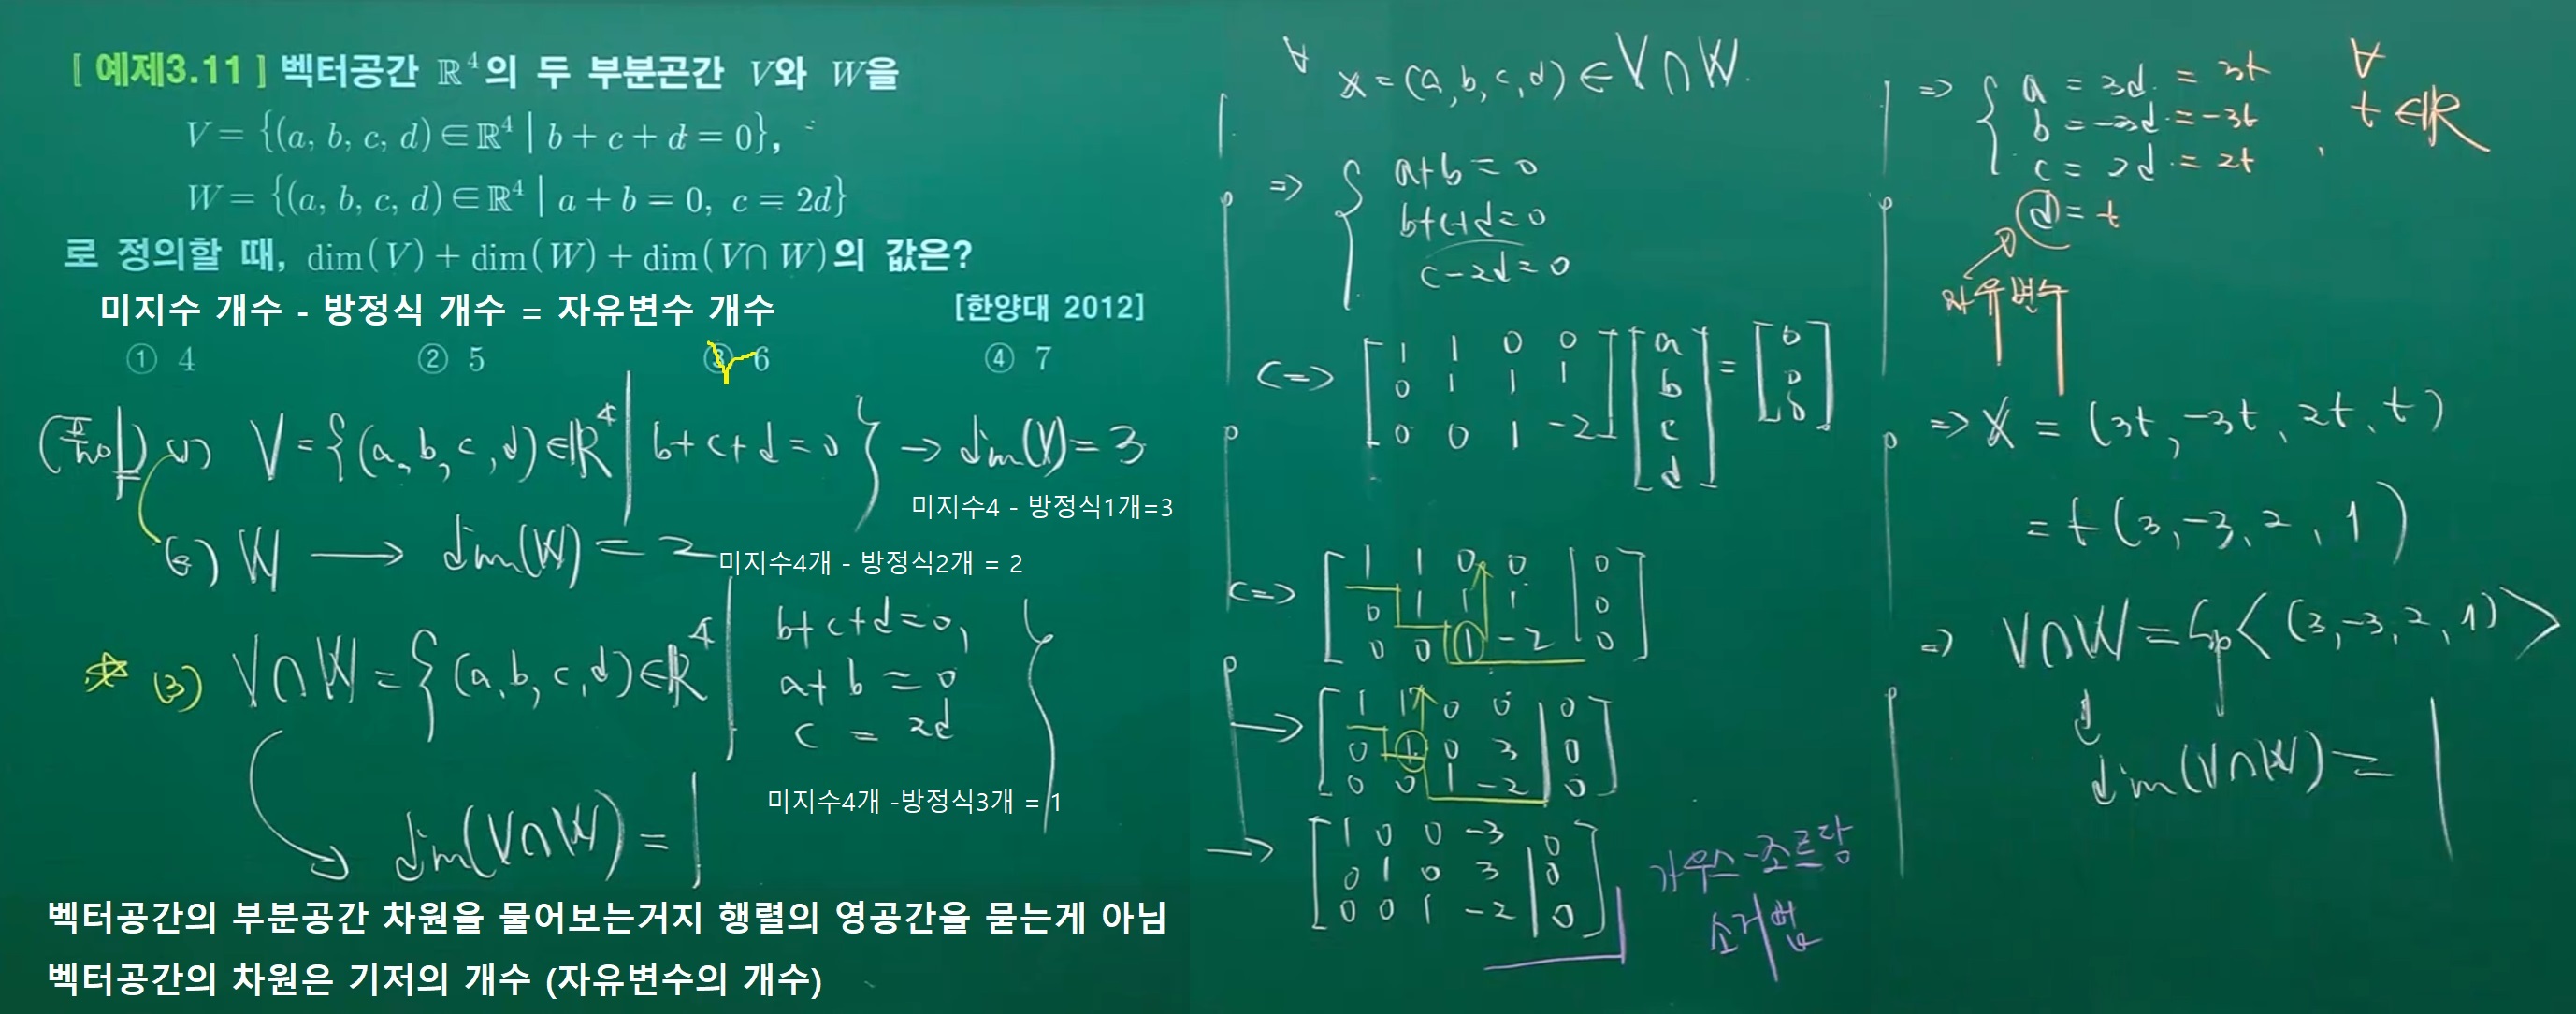 [ 예제3.11 ] 벡터공간 ℝ⁴의 두 부분곤간 V와 W을
V = {(a, b, c, d)∈ℝ⁴ | b + c + d = 0},
W = {(a, b, c, d)∈ℝ⁴ | a + b = 0, c = 2d}
로 정의할 때, dim(V) + dim(W) + dim(V∩W)의 값은?
미지수 개수 - 방정식 개수 = 자유변수 개수
[한양대 2012]
① 4 ② 5 ③ 6 ④ 7
(풀이) (1) V = {(a, b, c, d)∈ℝ⁴ | b+c+d=0} → dim(V)=3
미지수4 - 방정식1개=3
(2) W → dim(W) = 2
미지수4개 - 방정식2개 = 2
☆ (3) V∩W = {(a, b, c, d)∈ℝ⁴ | b+c+d=0,
a+b = 0
c = 2d }
미지수4개 -방정식3개 = 1
dim(V∩W) = 1
벡터공간의 부분공간 차원을 물어보는거지 행렬의 영공간을 묻는게 아님
벡터공간의 차원은 기저의 개수 (자유변수의 개수)
∀ x = (a, b, c, d) ∈ V∩W.
⇒ { a+b = 0
b+c+d = 0
c-2d = 0
⇔ [ 1 1 0 0 ] [ a ] = [ 0 ]
[ 0 1 1 1 ] [ b ] [ 0 ]
[ 0 0 1 -2 ] [ c ] [ 0 ]
[ d ]
⇔ [ 1 1 0 0 | 0 ]
[ 0 1 1 1 | 0 ]
[ 0 0 1 -2 | 0 ]
→ [ 1 1 0 0 | 0 ]
[ 0 1 0 3 | 0 ]
[ 0 0 1 -2 | 0 ]
→ [ 1 0 0 -3 | 0 ]
[ 0 1 0 3 | 0 ]
[ 0 0 1 -2 | 0 ]
가우스-조르당
소거법
⇒ { a = 3d = 3t
b = -3d = -3t
c = 2d = 2t
d = t
, ∀ t∈ℝ
자유변수
⇒ x = (3t, -3t, 2t, t)
= t(3, -3, 2, 1)
⇒ V∩W = Sp<(3, -3, 2, 1)>
dim(V∩W) = 1